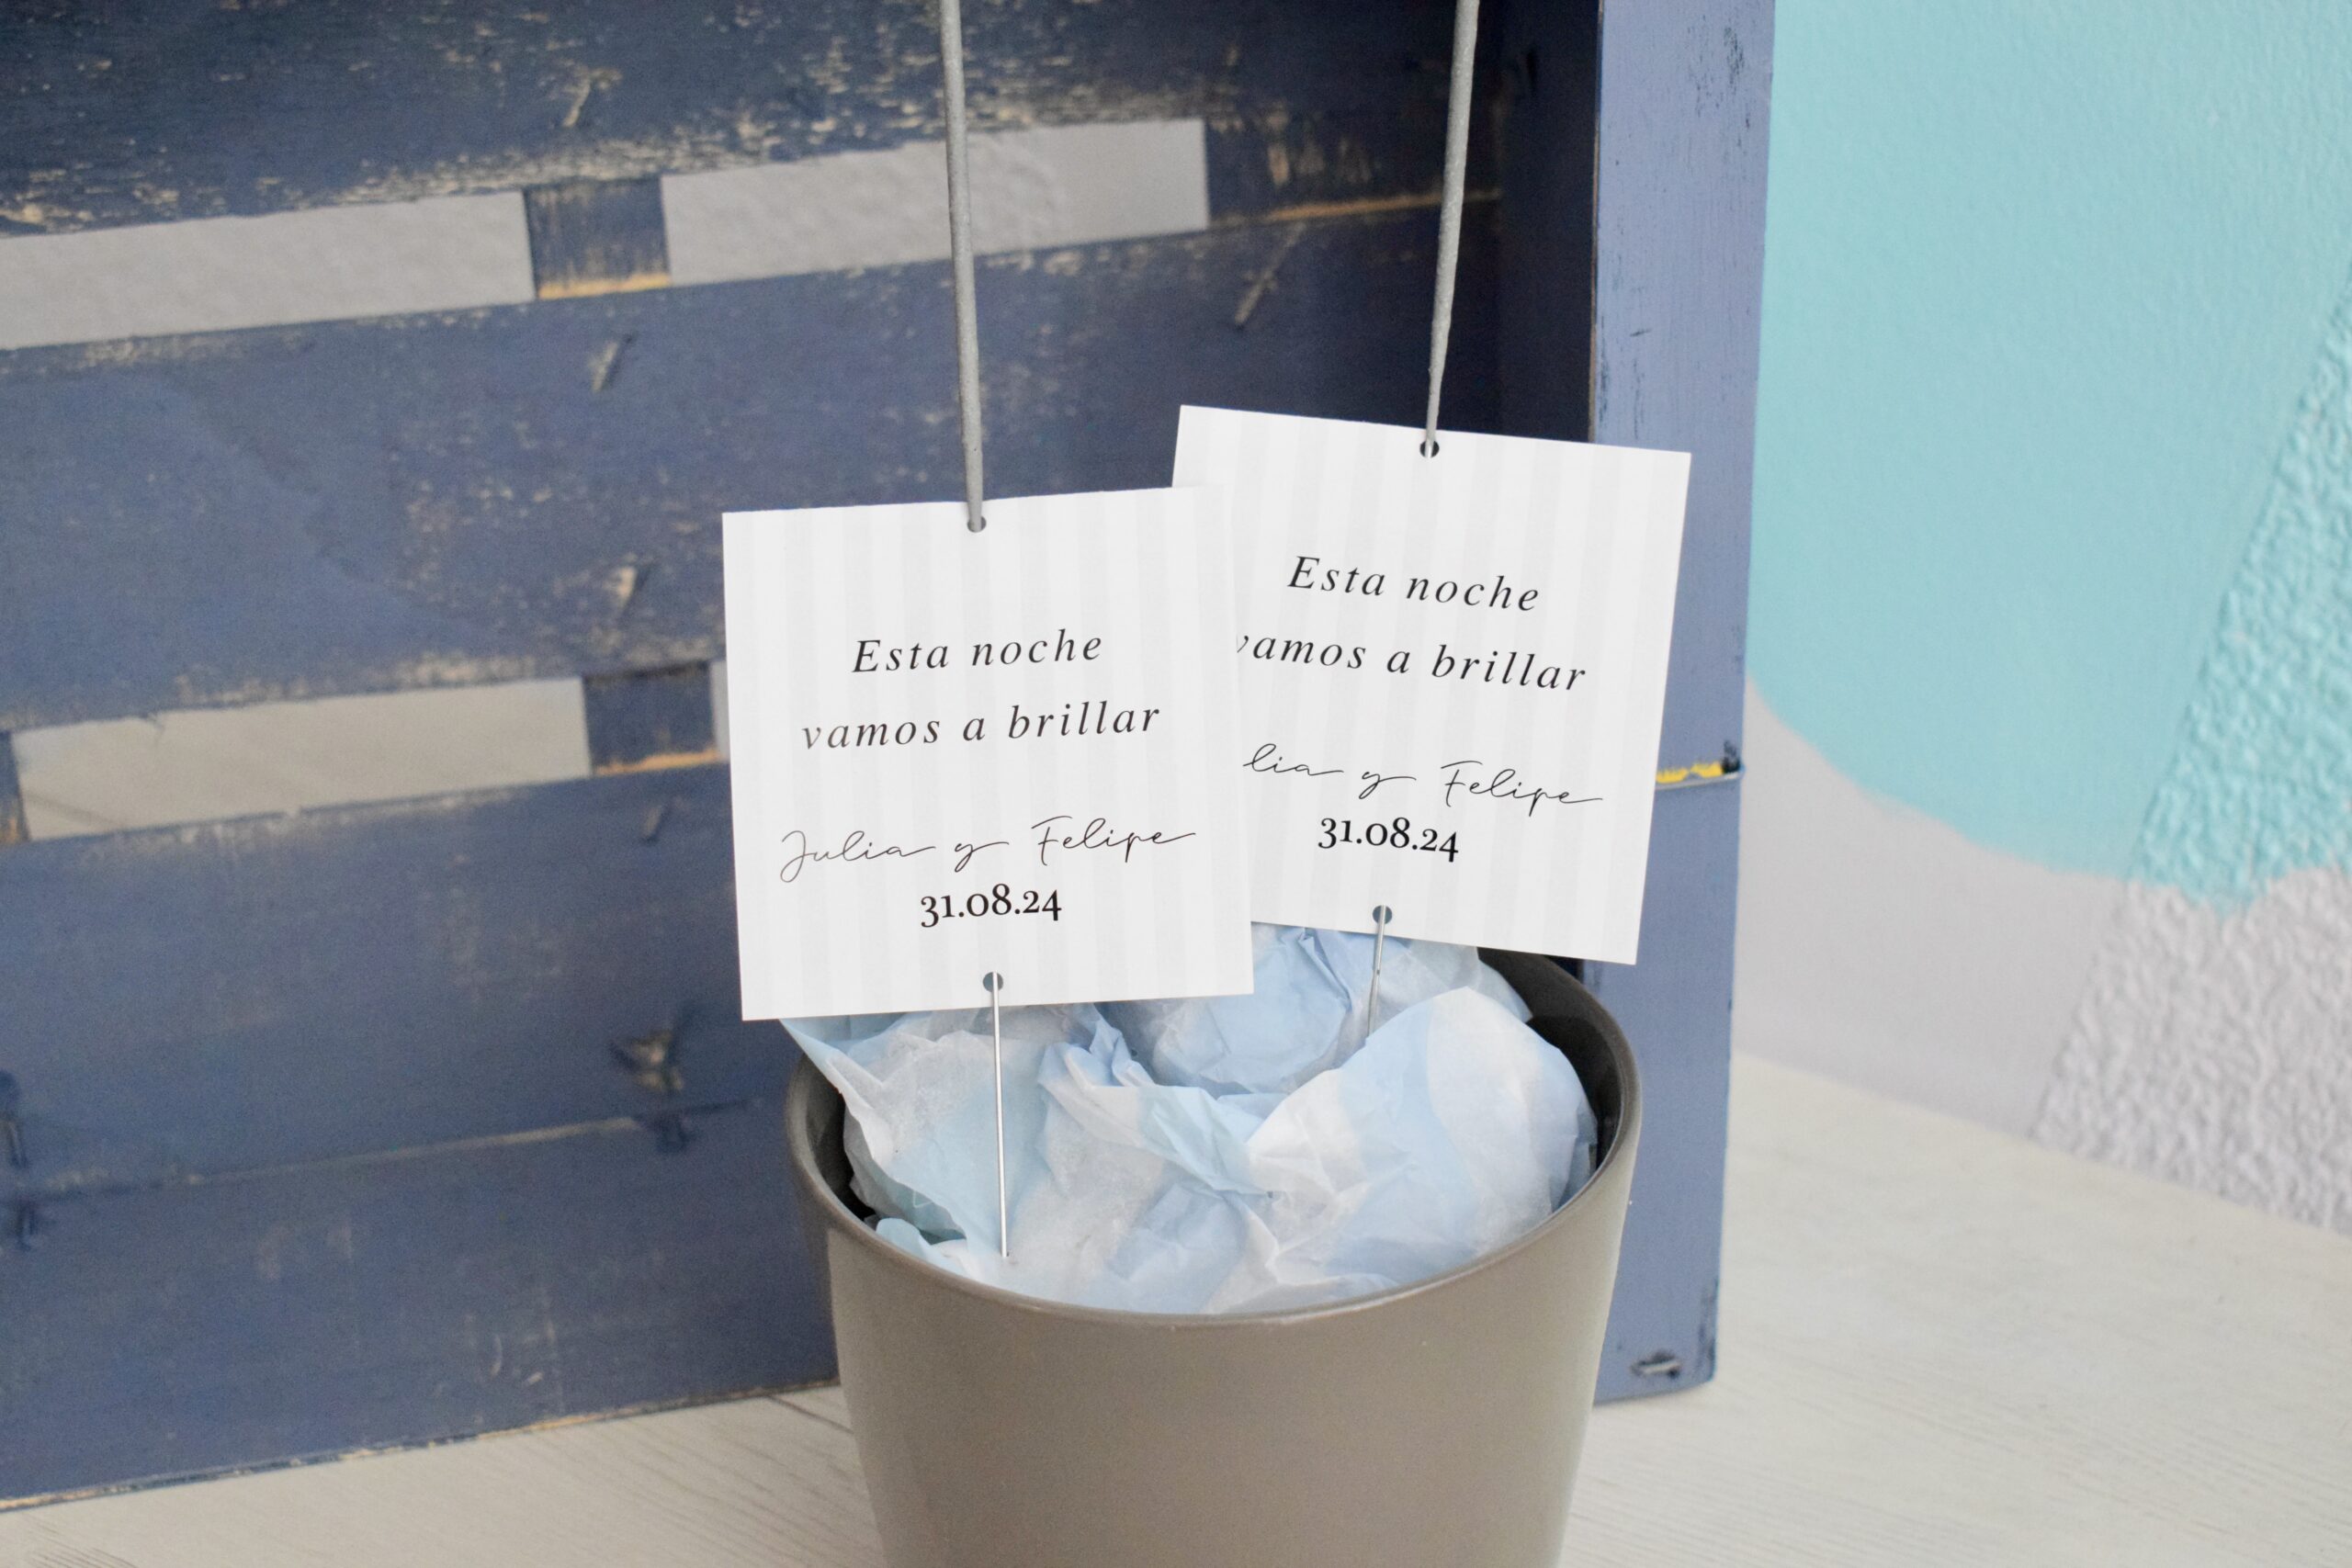 Esta noche
vamos a brillar
Julia y Felipe
31.08.24
Esta noche
vamos a brillar
lia y Felipe
31.08.24